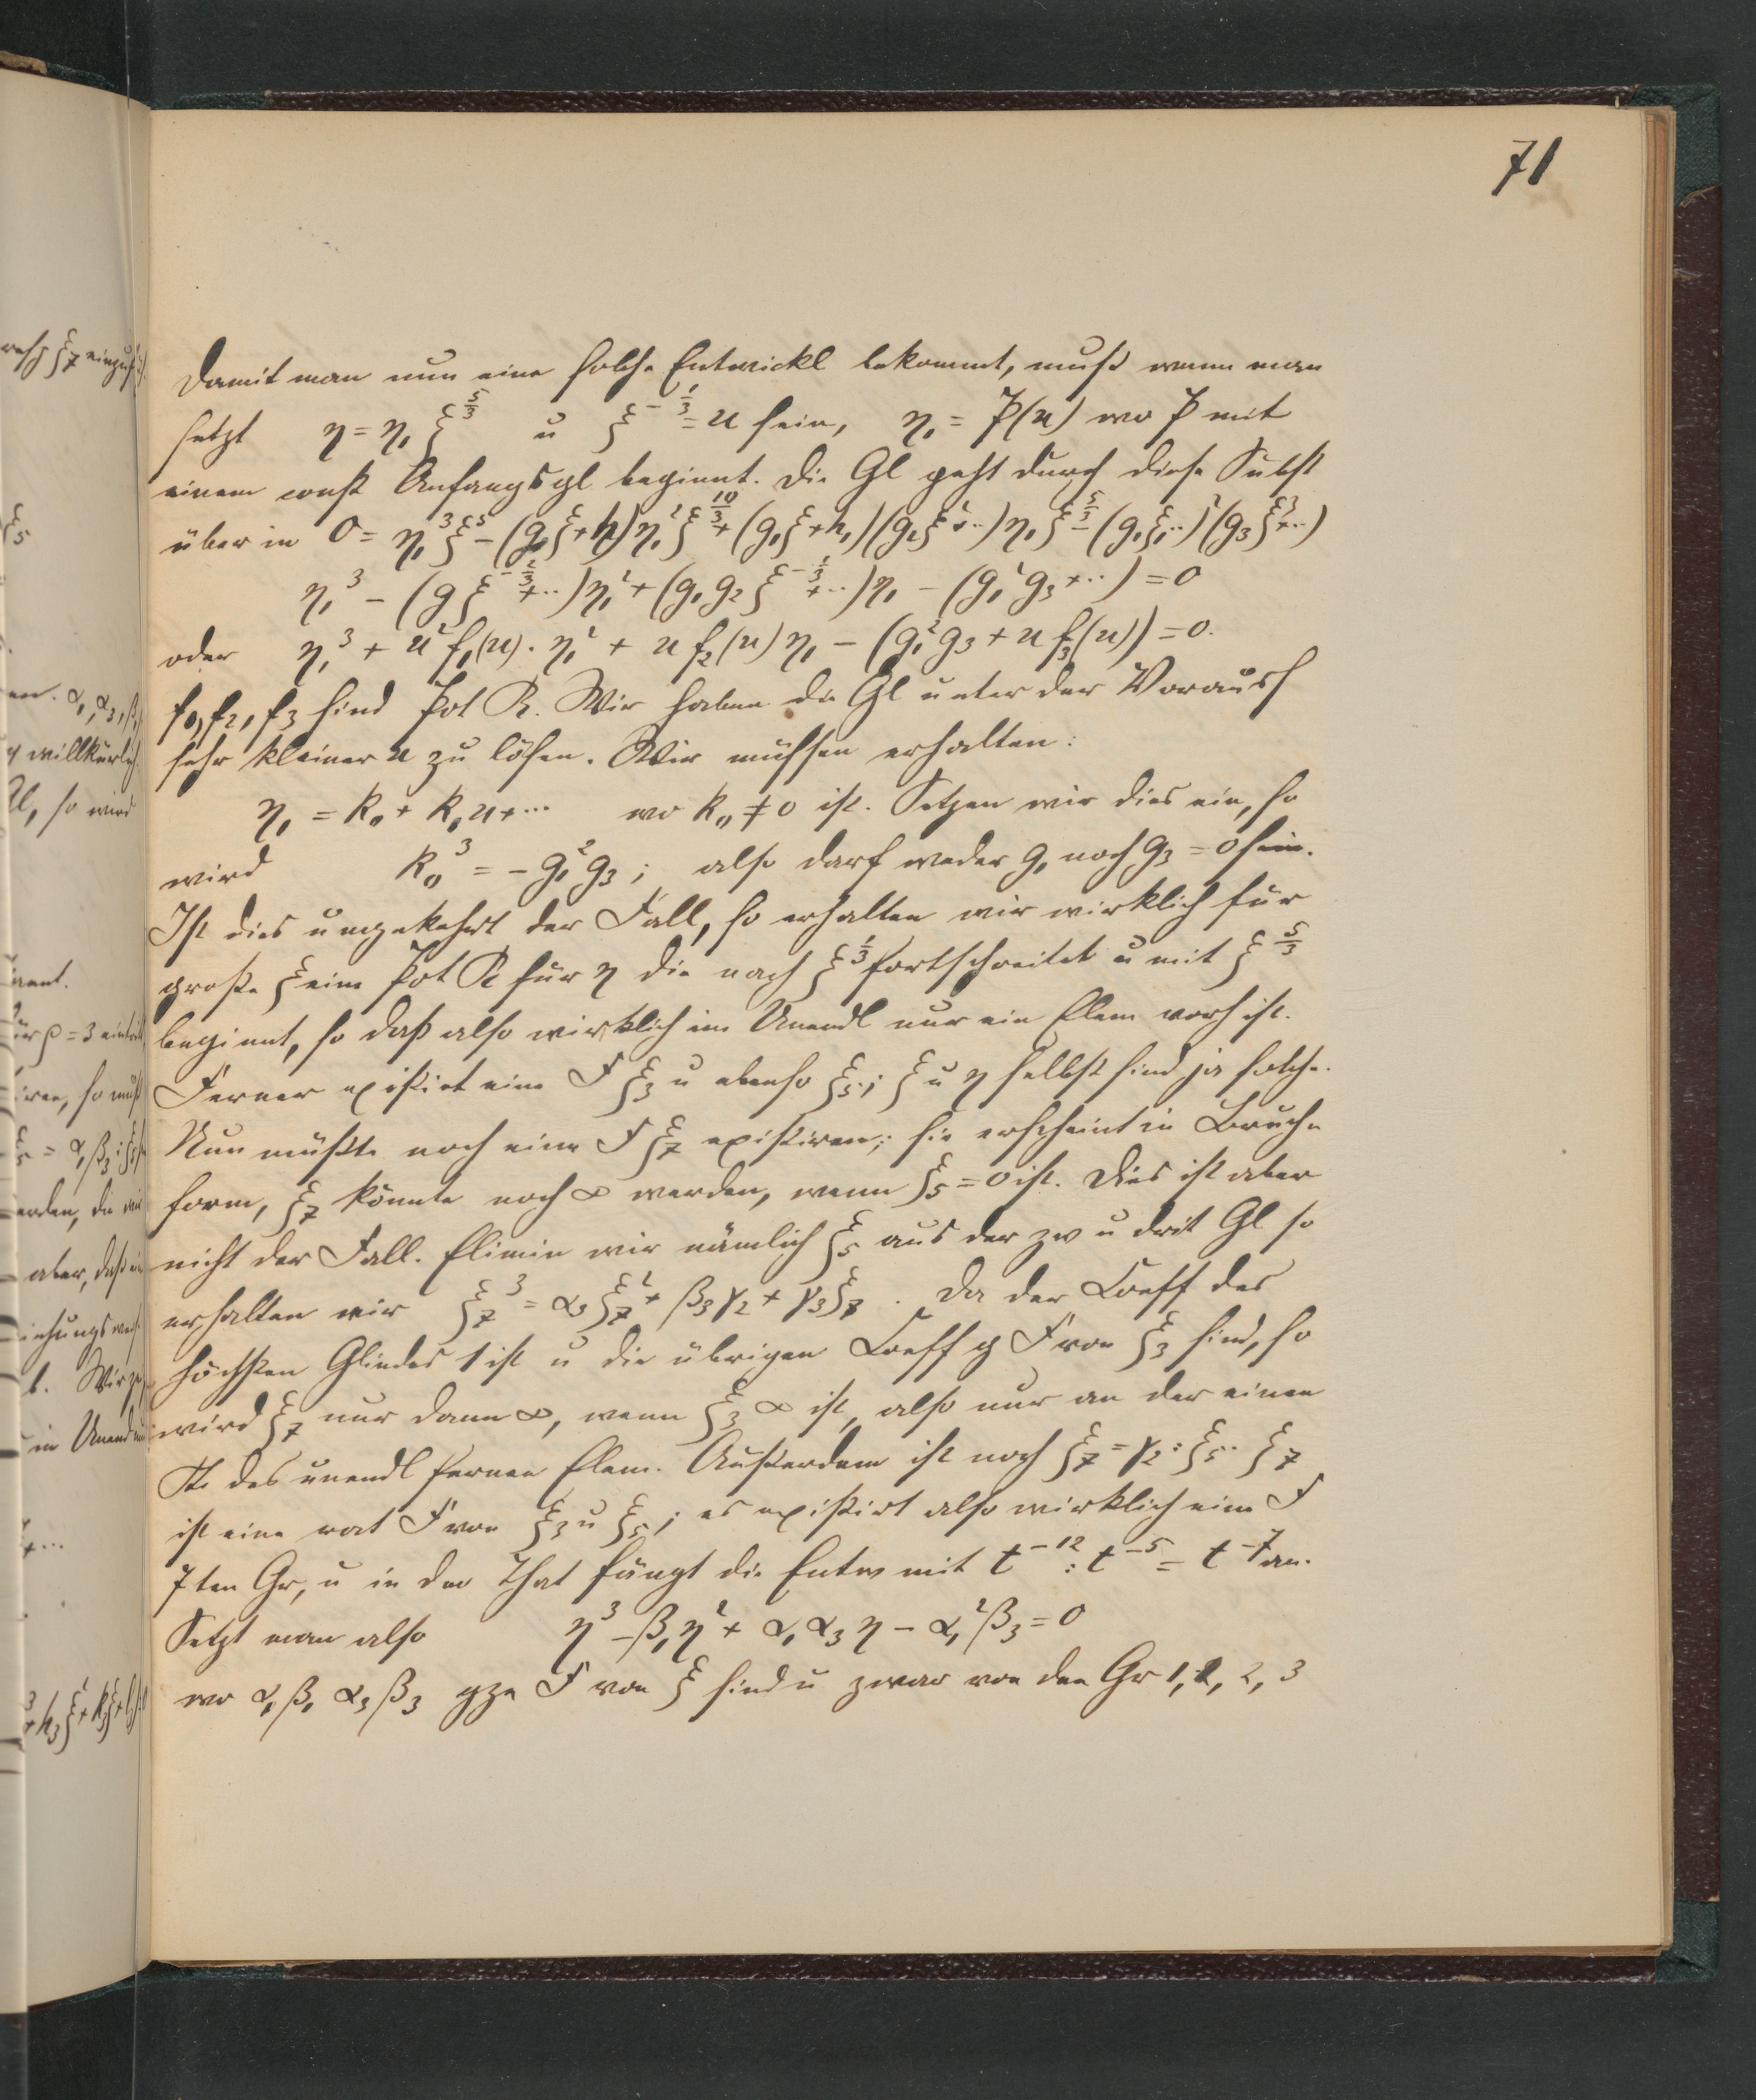 71
Damit man nun eine solche Entwickl bekommt, muß wenn man
setzt η = η₁ ξ^{5/3} u ξ^{-1/3} = u sein, η₁ = P(u) wo P mit
einem const Anfangsgl beginnt. Die Gl geht durch diese Subst
über in 0 = η₁³ξ⁵ - (g₀ξ+h)η₁²ξ^{10/3} + (g₁ξ+h₁)(g₂ξ²+..)η₁ξ^{5/3} - (g₁ξ..)²(g₃ξ³+..)
η₁³ - (gξ^{-2/3}+..)η₁² + (g₁g₂ξ^{-1/3}+..)η₁ - (g₁²g₃+..) = 0
oder η₁³ + u²f₁(u).η₁² + u f₂(u)η₁ - (g₁²g₃ + u f₃(u)) = 0.
f₁, f₂, f₃ sind Pot R. Wir haben die Gl unter der Vorauss
sehr kleiner u zu lösen. Wir müssen erhalten:
η₁ = k₀ + k₁u + ... wo k₀ ≠ 0 ist. Setzen wir dies ein, so
wird k₀³ = - g₁²g₃; also darf weder g₁ noch g₃ = 0 sein.
Ist dies umgekehrt der Fall, so erhalten wir wirklich für
große ξ eine Pot R für η die nach ξ^{1/3} fortschreitet u mit ξ^{5/3}
beginnt, so daß also wirklich im Unendl nur ein Elem vorh ist.
Ferner existirt eine F ξ₃ u ebenso ξ₅; ξ u η selbst sind ja solche.
Nun müßte noch eine F ξ₇ existiren; sie erscheint in Bruch
form, ξ₇ könnte noch ∞ werden, wenn ξ₅ = 0 ist. Dies ist aber
nicht der Fall. Elimin wir nämlich ξ₅ aus der zw u drit Gl so
erhalten wir ξ₇³ = α₃ξ₇² + β₃γ₂ + γ₃ξ₇. Da der Coeff des
höchsten Gliedes 1 ist u die übrigen Coeff g F von ξ₃ sind, so
wird ξ₇ nur dann ∞, wenn ξ₃ ∞ ist, also nur an der einen
St. des unendl fernen Elem. Außerdem ist noch ξ₇ = γ₂ : ξ₅. ξ₇
ist eine rat F von ξ₃ u ξ₅; es existirt also wirklich eine F
7ten Gr, u in der That fängt die Entw mit t^{-12} : t^{-5} = t^{-7} an.
Setzt man also η³ - β₁η² + α₁α₃η - α₁²β₃ = 0
wo α₁ β₁ α₃ β₃ gze F von ξ sind u zwar von den Gr 1, 2, 2, 3